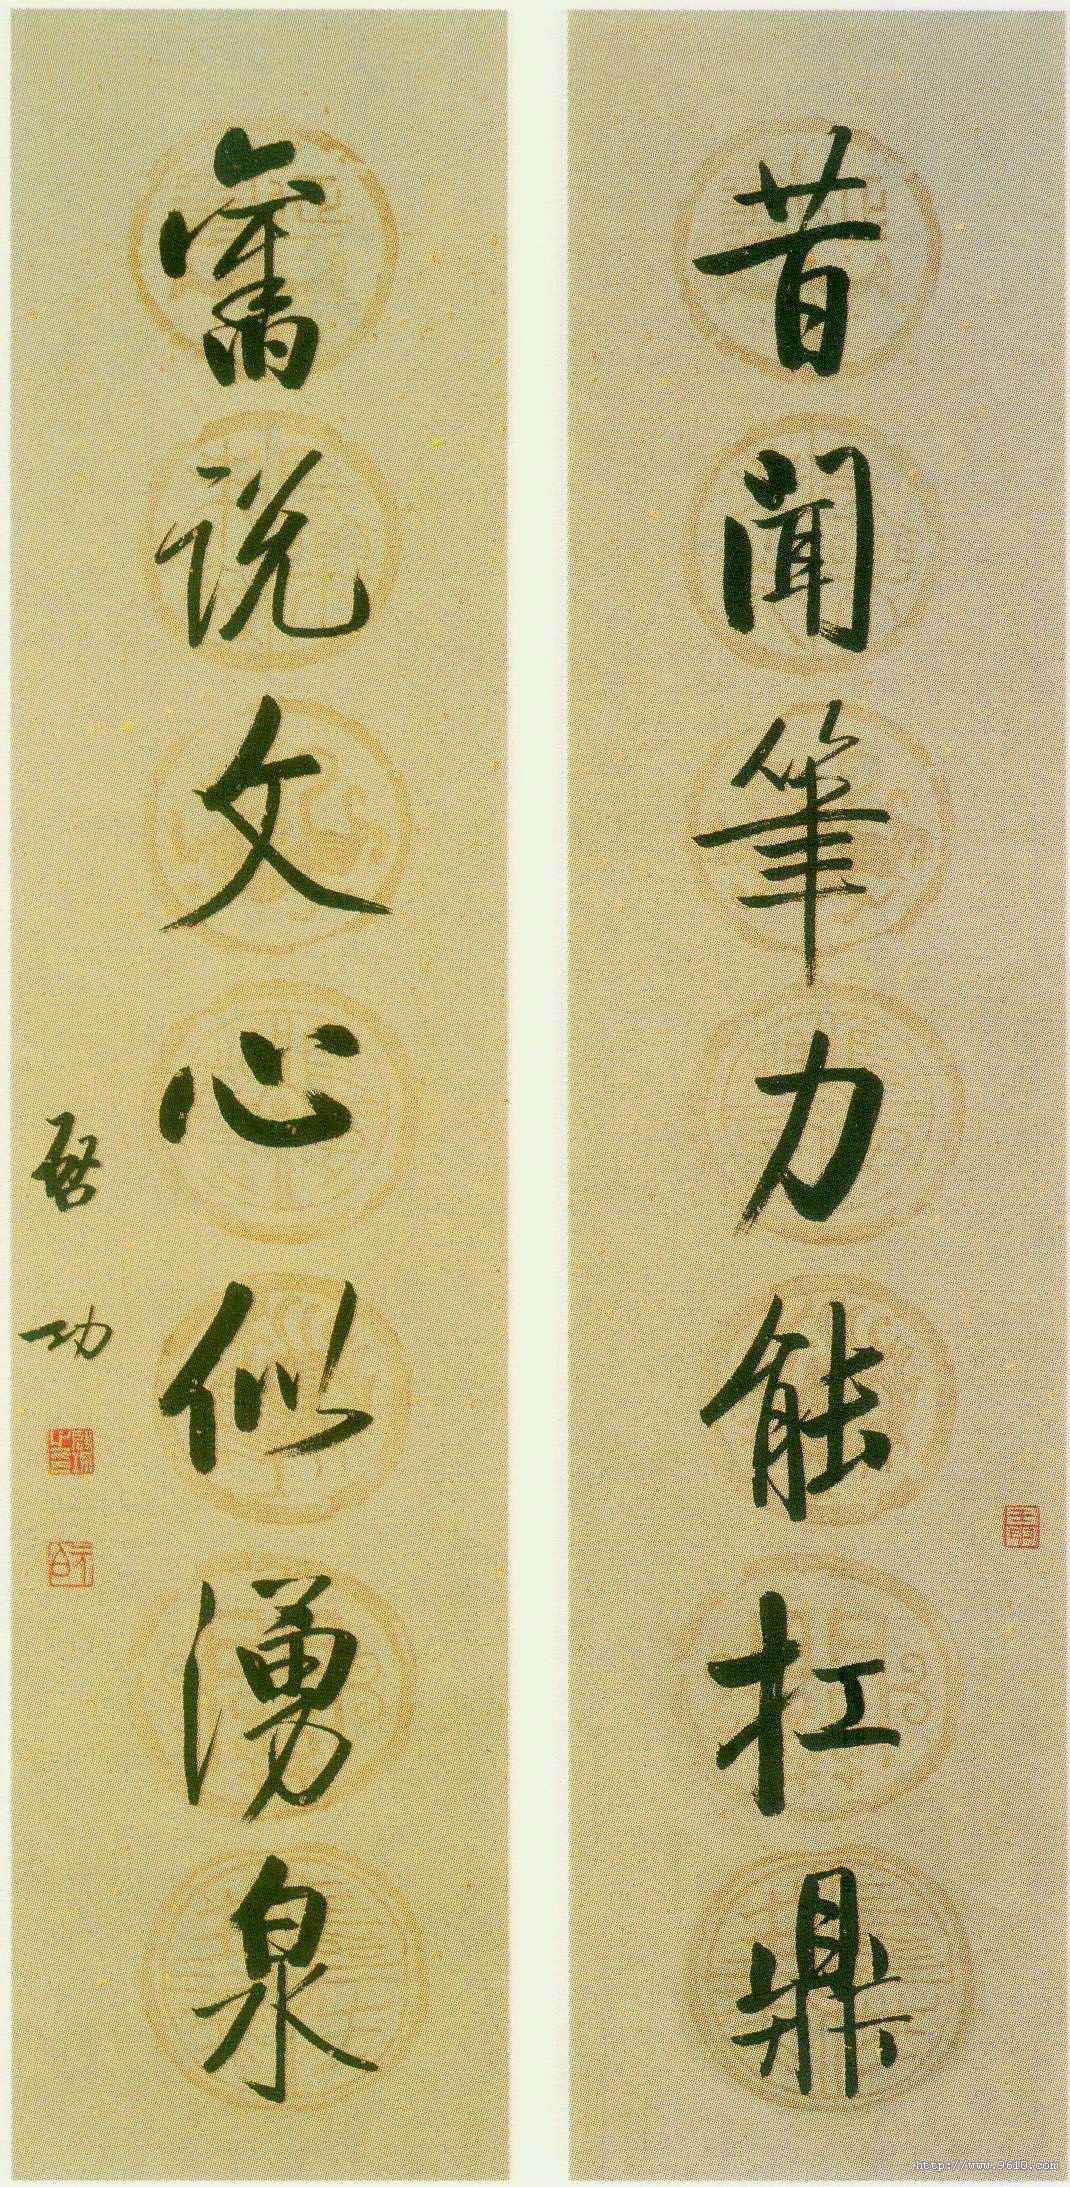 昔聞筆力能扛鼎
舊說文心似湧泉
啓功
http://www.9610.com